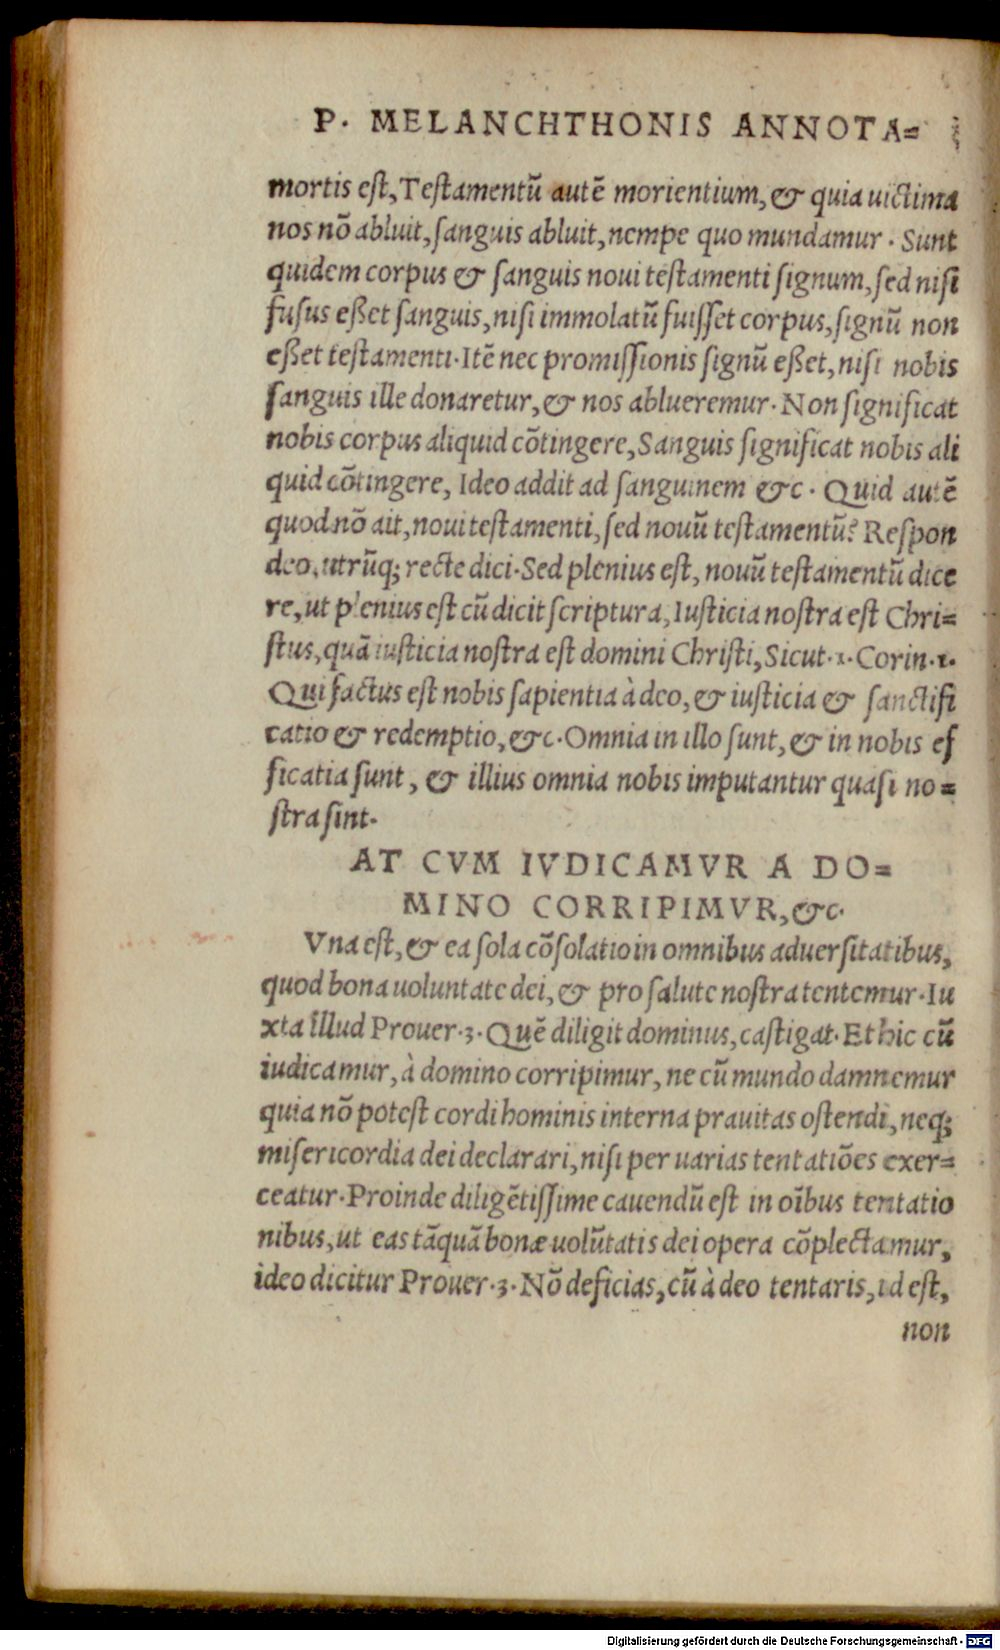 P. MELANCHTHONIS ANNOTA=
mortis eſt, Teſtamentū autē morientium, & quia uictima
nos nō abluit, ſanguis abluit, nempe quo mundamur. Sunt
quidem corpus & ſanguis noui teſtamenti ſignum, ſed niſi
fuſus eßet ſanguis, niſi immolatū fuiſſet corpus, ſignū non
eßet teſtamenti. Itē nec promiſſionis ſignū eßet, niſi nobis
ſanguis ille donaretur, & nos ablueremur. Non ſignificat
nobis corpus aliquid cōtingere, Sanguis ſignificat nobis ali
quid cōtingere, Ideo addit ad ſanguinem &c. Quid autē
quod nō ait, noui teſtamenti, ſed nouū teſtamentū? Reſpon
deo, utrūq; recte dici. Sed plenius eſt, nouū teſtamentū dice
re, ut plenius eſt cū dicit ſcriptura, Iuſticia noſtra eſt Chri=
ſtus, quā iuſticia noſtra eſt domini Chriſti, Sicut. 1. Corin. 1.
Qui factus eſt nobis ſapientia à deo, & iuſticia & ſanctifi
catio & redemptio, &c. Omnia in illo ſunt, & in nobis ef
ficatia ſunt, & illius omnia nobis imputantur quaſi no=
ſtra ſint.
AT CVM IVDICAMVR A DO=
MINO CORRIPIMVR, &c.
Vna eſt, & ea ſola cōſolatio in omnibus aduerſitatibus,
quod bona uoluntate dei, & pro ſalute noſtra tentemur. Iu
xta illud Prouer. 3. Quē diligit dominus, caſtigat. Et hic cū
iudicamur, à domino corripimur, ne cū mundo damnemur
quia nō poteſt cordi hominis interna prauitas oſtendi, neq;
miſericordia dei declarari, niſi per uarias tentatiōes exer=
ceatur. Proinde diligētiſſime cauendū eſt in oībus tentatio
nibus, ut eas tāquā bonæ uolūtatis dei opera cōplectamur,
ideo dicitur Prouer. 3. Nō deficias, cū à deo tentaris, id eſt,
non
Digitalisierung gefördert durch die Deutsche Forschungsgemeinschaft - DFG